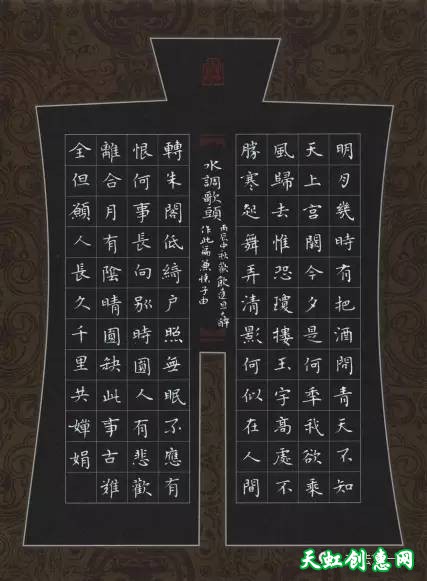 明月幾時有把酒問青天不知
天上宮闕今夕是何年我欲乘
風歸去惟恐瓊樓玉宇高處不
勝寒起舞弄清影何似在人間
水調歌頭
丙辰中秋歡飲達旦大醉
作此篇兼懷子由
轉朱閣低綺户照無眠不應有
恨何事長向別時圓人有悲歡
離合月有陰晴圓缺此事古難
全但願人長久千里共嬋娟
天虹创意网